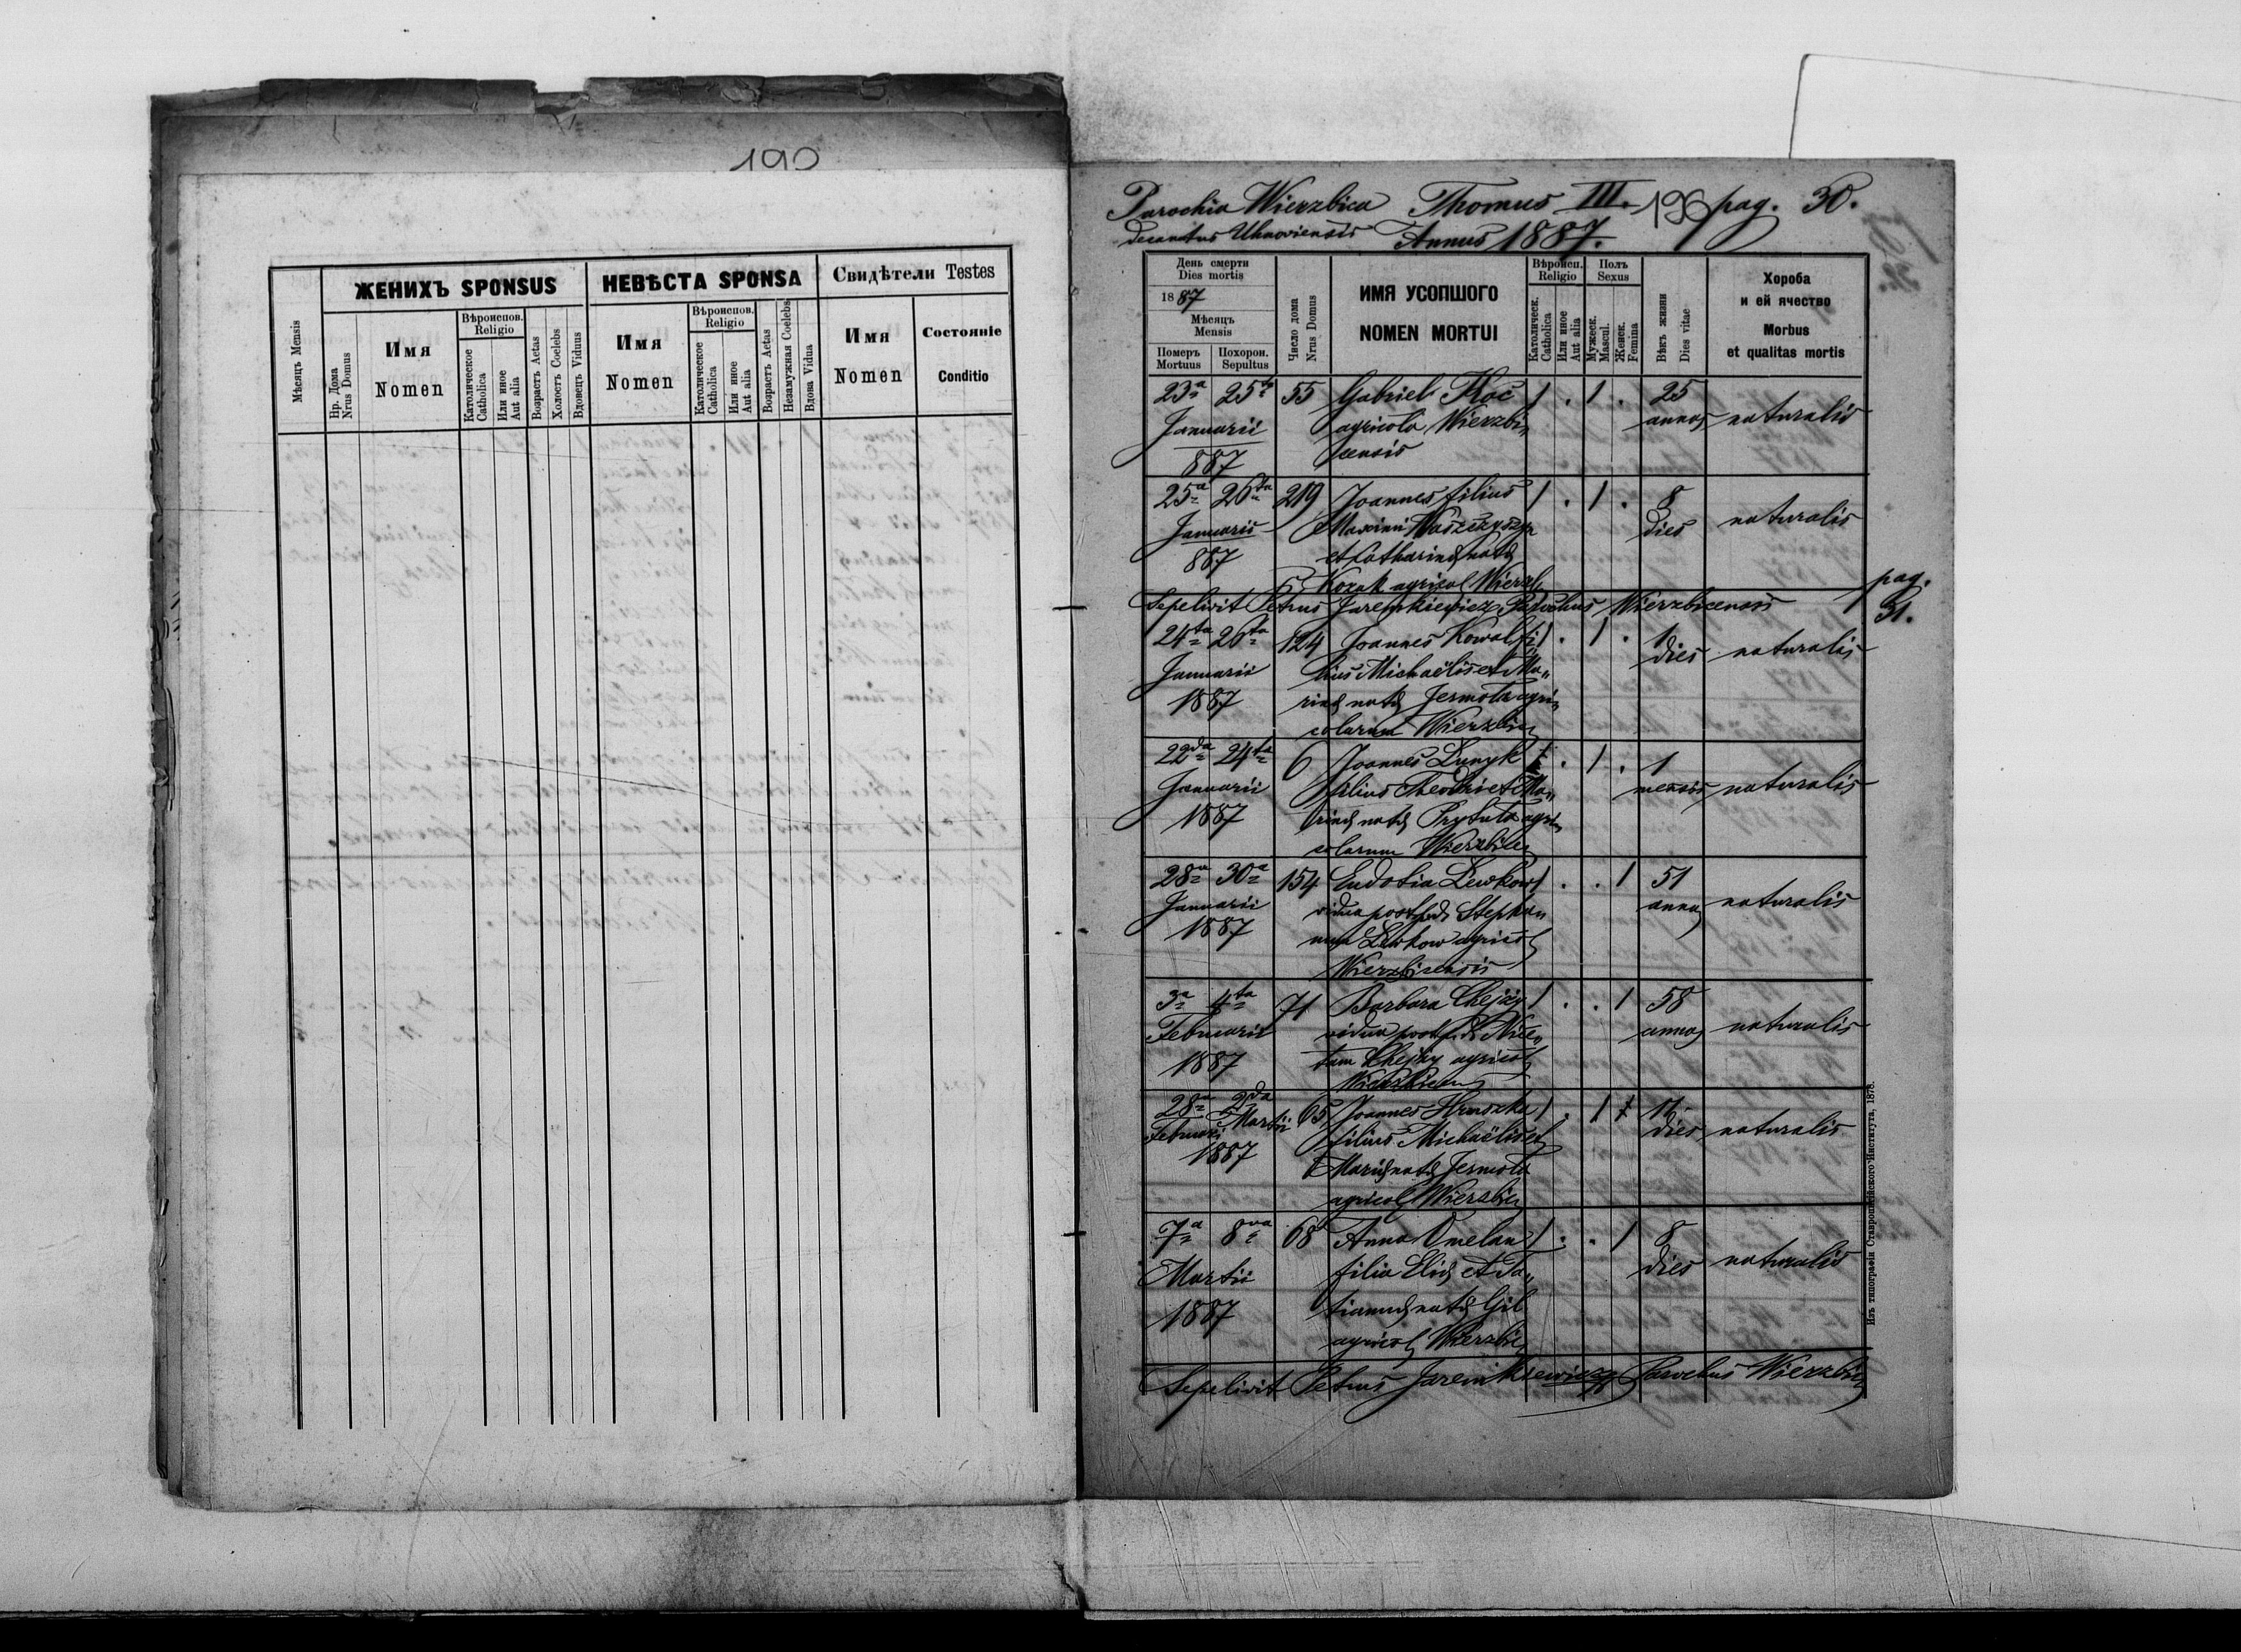 190
ЖЕНИХЪ SPONSUS
НЕВѢСТА SPONSA
Свидѣтели Testes
Мѣсяцъ Mensis
Нр. Дома
Nrus Domus
Имя
Nomen
Вѣроиспов.
Religio
Католическое
Catholica
Или иное
Aut alia
Возрастъ Aetas
Холостъ Coelebs
Вдовецъ Viduus
Имя
Nomen
Вѣроиспов.
Religio
Католическое
Catholica
Или иное
Aut alia
Возрастъ Aetas
Незамужная Coelebs
Вдова Vidua
Имя
Nomen
Состояніе
Conditio
Parochia Wierzbica Thomus III. 196 pag. 30.
Decanatus Uhnoviensis Annus 1887.
День смерти
Dies mortis
1887
Мѣсяцъ
Mensis
Померъ
Mortuus
Похорон.
Sepultus
Число дома
Nrus Domus
ИМЯ УСОПШОГО
NOMEN MORTUI
Вѣроисп.
Religio
Католическ.
Catholica
Или иное
Aut alia
Полъ
Sexus
Мужеск.
Mascul.
Женск.
Femina
Вѣкъ жизни
Dies vitae
Хороба
и ей ячество
Morbus
et qualitas mortis
23a 25a 55 Gabriel Koć 1 . 1 . 25
Januarii agricola Wierzbi„ annos naturalis
887 censis
25a 26ta 219 Joannes filius 1 . 1 . 8
Januarii Maximi dies naturalis
887 et Catharinae natae
Kozak agricol Wierzb
Sepelivit Petrus Jaremkiewicz Parochus Wierzbicensis
pag.
31.
24ta 26ta 124 Joannes Kowal fi 1 . 1 . 1
Januarii lius Michaëlis et Ma„ dies naturalis
1887 rinae natae Jermoła agri„
colarum Wierzbic
22da 24ta 6 Joannes Lunyk 1 . 1 . 1
Januarii filius Theodori et Ma„ mensis naturalis
1887 rinae natae Prytuła agri„
colarum Wierzbic
28a 30a 154 Eudotia Lewkow 1 . . 1 51
Januarii vidua post Stepha„ annos naturalis
1887 num Lewkow agricol
Wierzbicensis
3a 4ta 71 Barbara 1 . . 1 58
Februarii vidua post Nice„ annos naturalis
1887 tam agricol
Wierzbicen
28a 2da 65 Joannes Hruszka 1 . 1 11
Februari Martii filius Michaëlis et dies naturalis
1887 Mariae natae Jermoła
agricol Wierzbic
7a 8va 68 Anna Omelan 1 . . 1 8
Martii filia Eliae et Ta„ dies naturalis
1887 tiannae natae Gil
agricol Wierzbic
Sepelivit Petrus Jaremkiewicz Parochus Wierzbic
Изъ типографіи Ставропигійского Института, 1878.